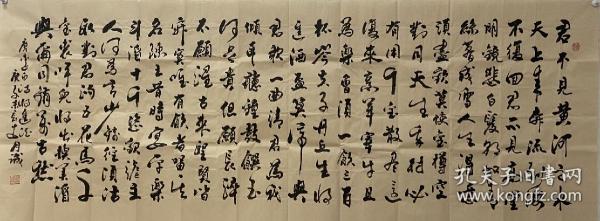 君不見黃河之水
天上來奔流到海
不復回君不見高堂
明鏡悲白髮朝如青
絲暮成雪人生得意
須盡歡莫使金樽空
對月天生我材必
有用千金散盡還
復來烹羊宰牛且
為樂會須一飲三百
杯岑夫子丹丘生
進酒盃莫停與
君歌一曲請君為我
傾耳聽鐘鼓饌玉
何足貴但願長醉
不願醒古來聖賢皆
寂寞唯有飲者留其
名陳王昔時宴平樂
斗酒十千恣歡謔主
人何為言少錢徑須沽
取對君酌五花馬千
金裘呼兒將出換美酒
與爾同銷萬古愁
孔夫子旧书网